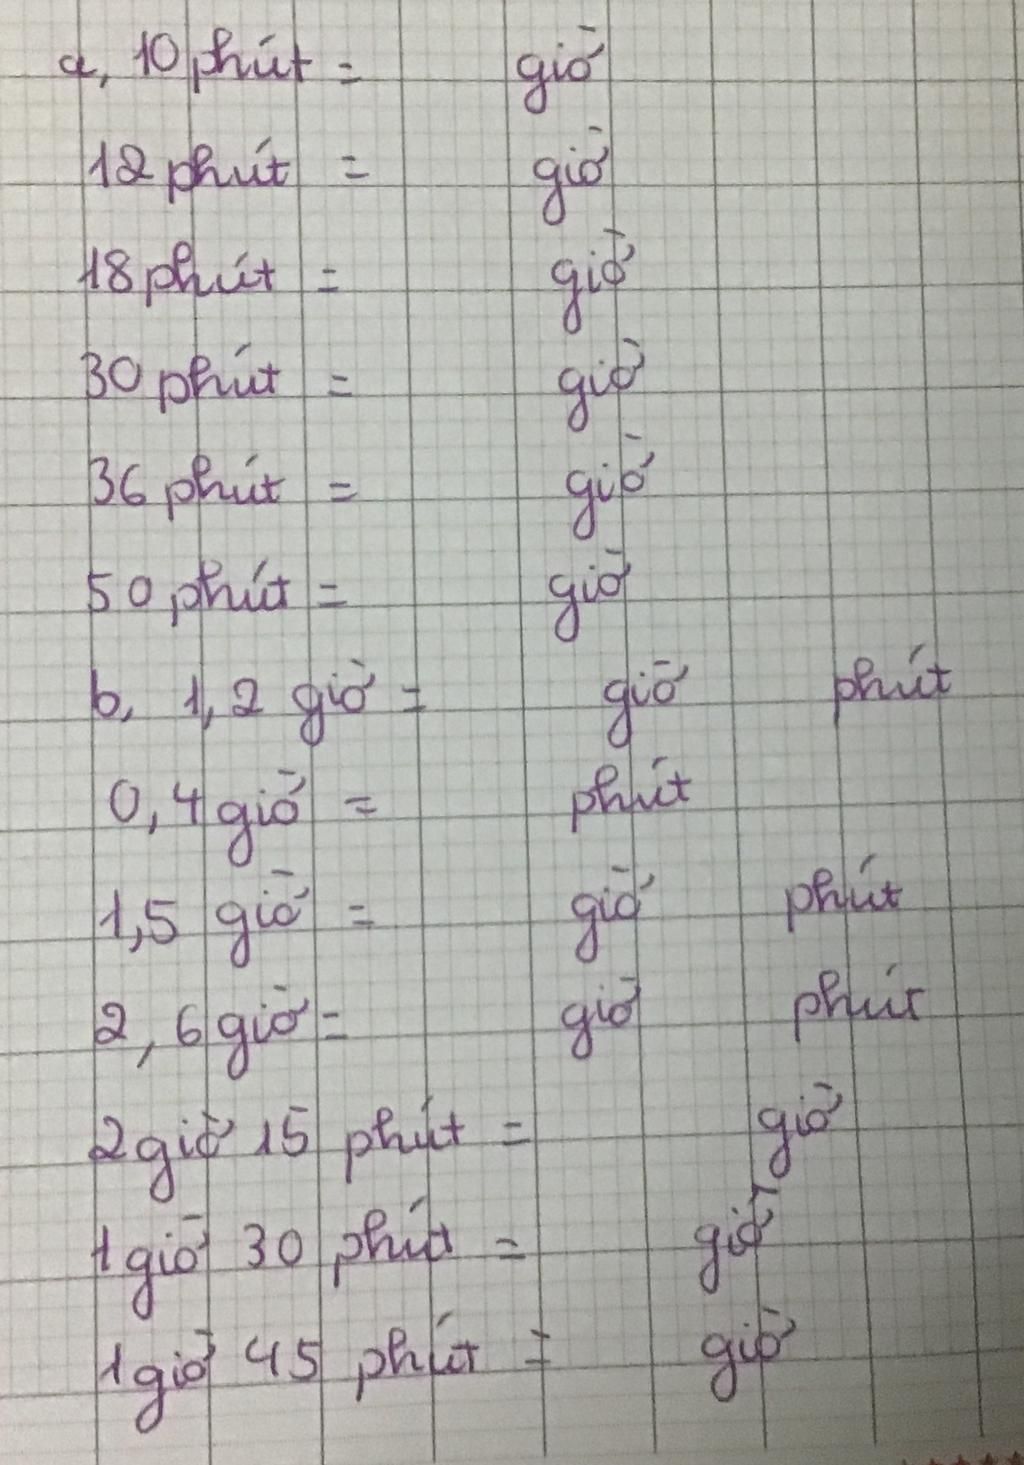 a, 10 phút = giờ
12 phút = giờ
18 phút = giờ
30 phút = giờ
36 phút = giờ
50 phút = giờ
b, 1,2 giờ = giờ phút
0,4 giờ = phút
1,5 giờ = giờ phút
2,6 giờ = giờ phút
2 giờ 15 phút = giờ
1 giờ 30 phút = giờ
1 giờ 45 phút = giờ